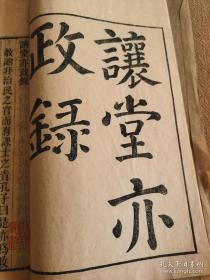 讓堂亦
政録
讓堂亦政錄
教諭非治民之官而有課士之責孔子曰是亦爲政